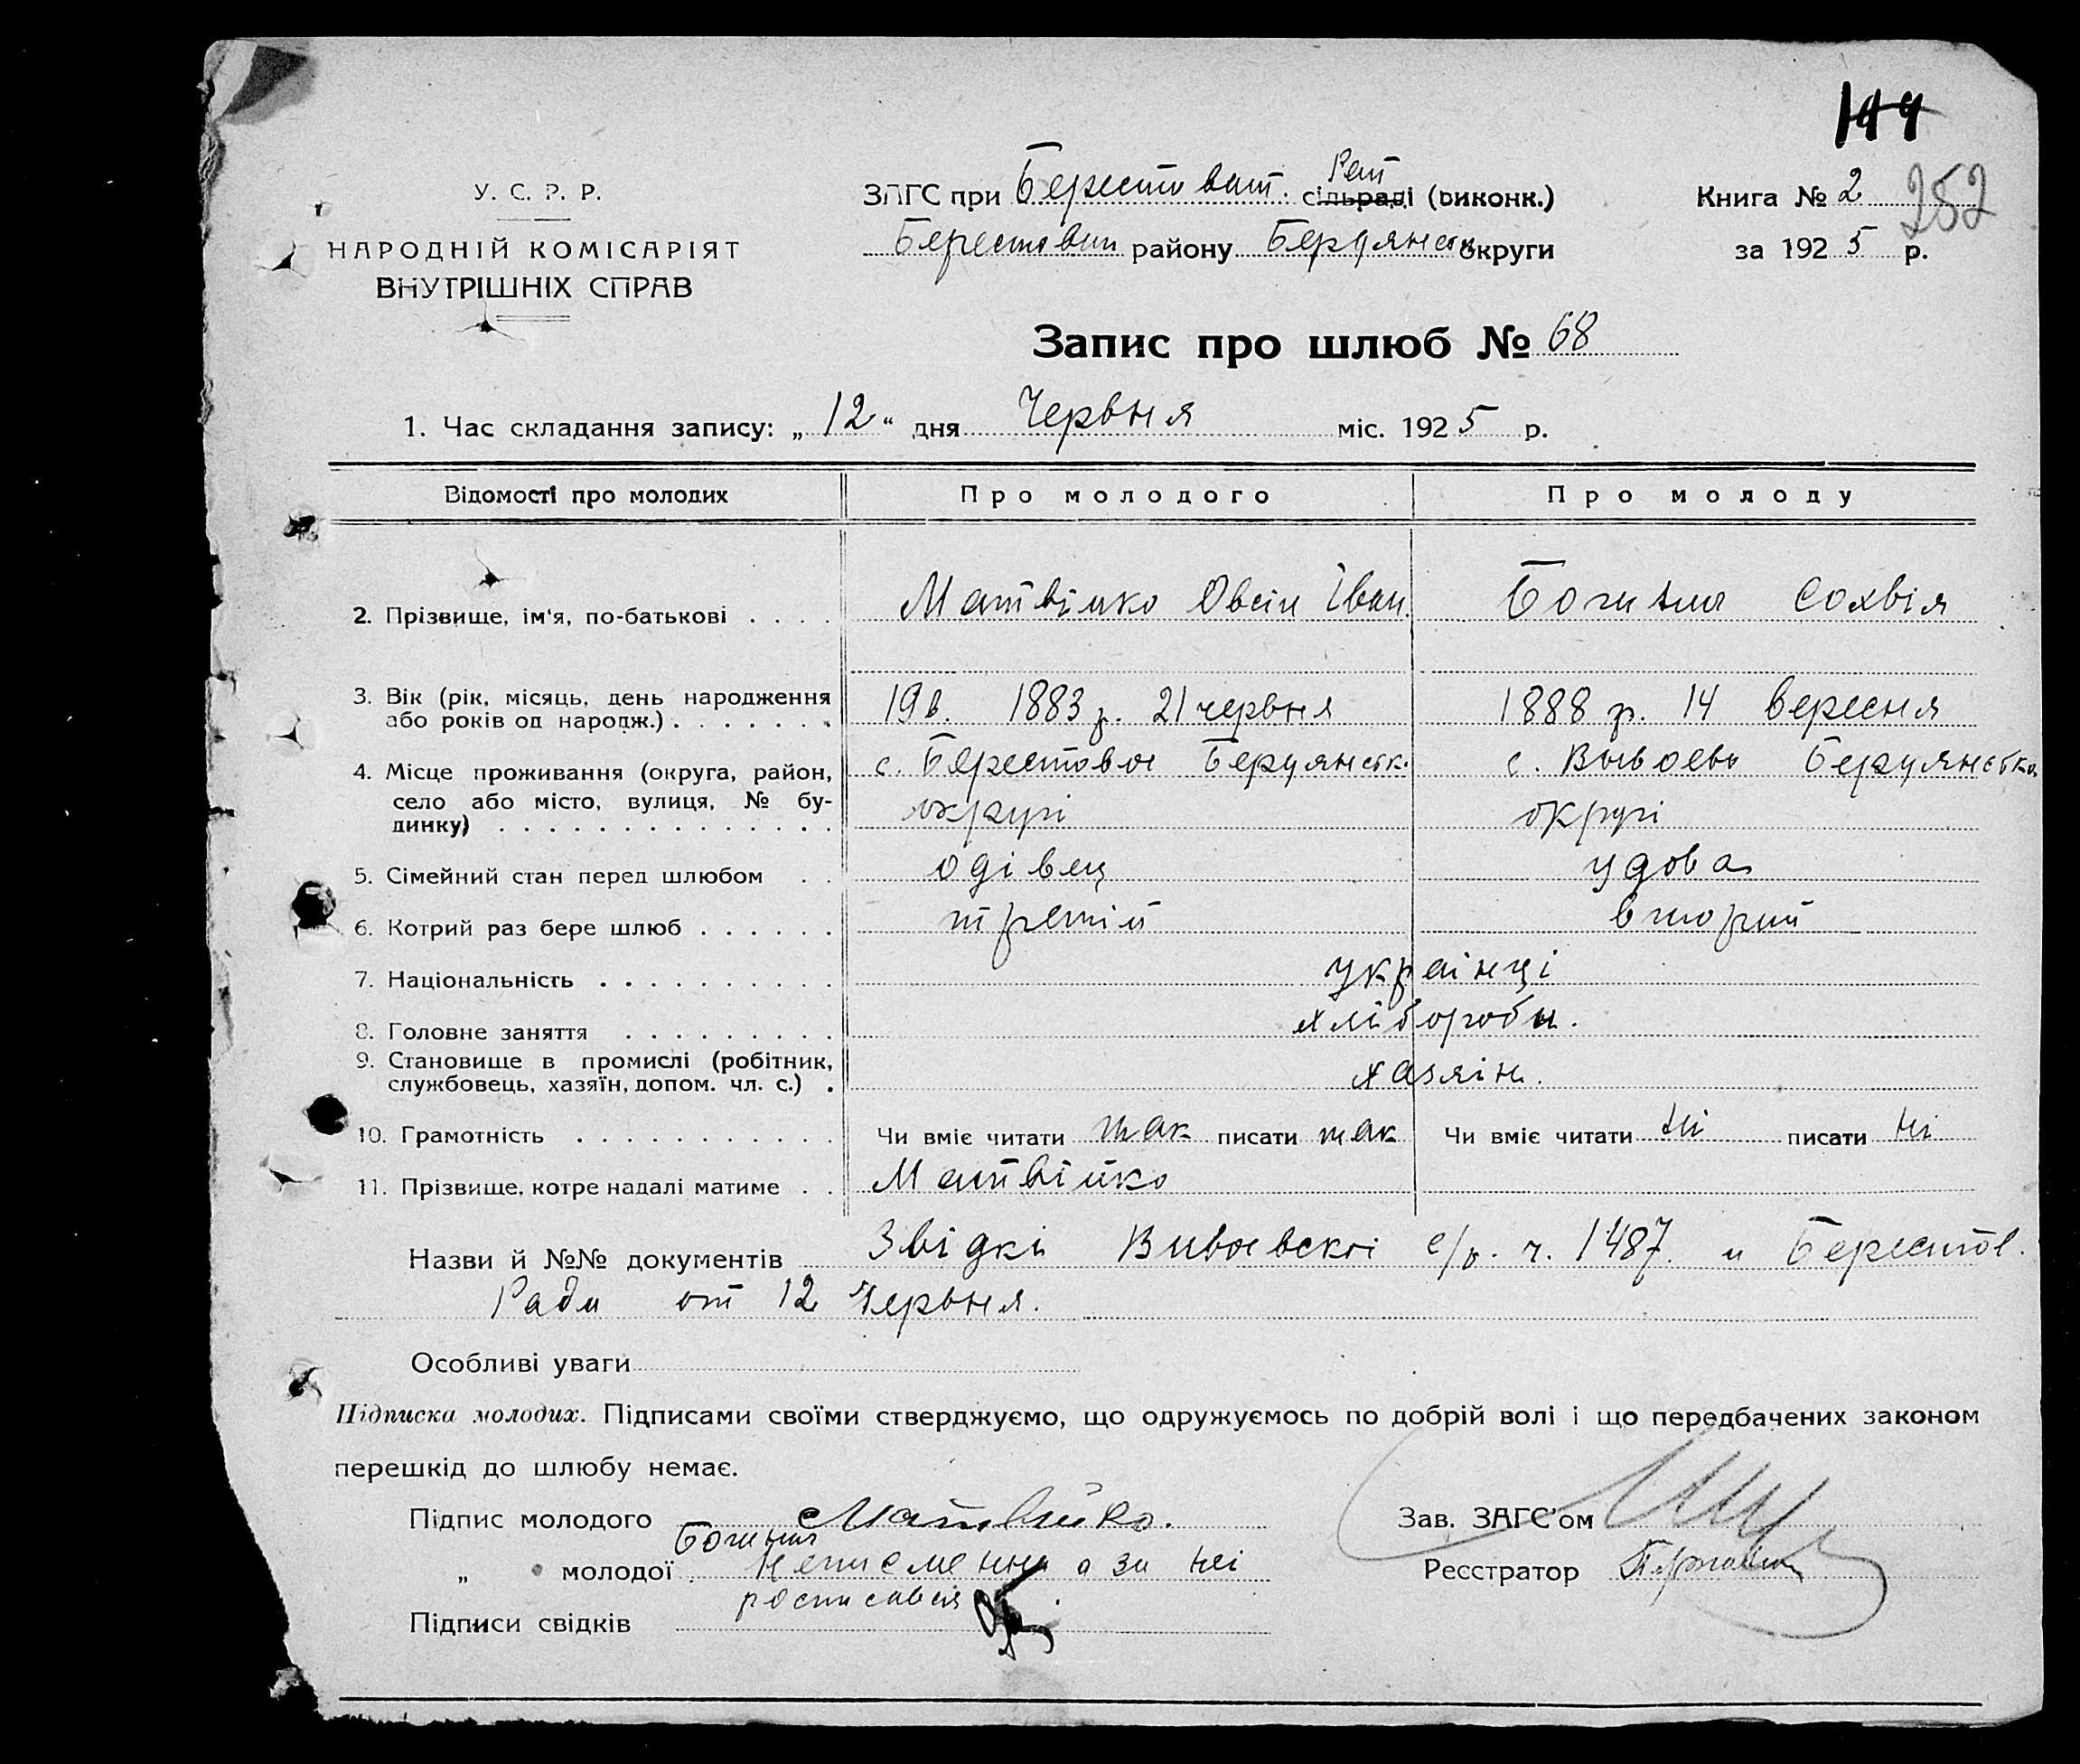 144
252
У. С. Р. Р.
НАРОДНІЙ КОМІСАРІЯТ
ВНУТРІШНІХ СПРАВ
ЗАГС при Берестоват. сільраді (виконк.)
Берестовип району Бердянськ округи
Книга № 2
за 1925 р.
Запис про шлюб № 68
1. Час складання запису: „12“ дня Червня міс. 1925 р.
Відомості про молодих Про молодого Про молоду
2. Прізвище, ім'я, по-батькові . . . . Матвійко Овсій Іван. Богиня Сохвія
3. Вік (рік, місяць, день народження або років од народж.) . . . . . . . 1883 р. 21 червня 1888 р. 14 вересня
4. Місце проживання (округа, район, село або місто, вулиця, № будинку) . . . . . . . . . . . . . . с. Берестовое Бердянськ. округі с. Бердянсько округі
5. Сімейний стан перед шлюбом . . одівец удова
6. Котрий раз бере шлюб . . . . . . третій вторий
7. Національність . . . . . . . . . . українці
8. Головне заняття . . . . . . . . . хліброби.
9. Становище в промислі (робітник, службовець, хазяїн, допом. чл. с.) . хазяін.
10. Грамотність . . . . . . . . . . . Чи вміє читати так писати так Чи вміє читати ні писати ні
11. Прізвище, котре надалі матиме . . Матвійко
Назви й №№ документів Звідкі с/р. ч. 1487. и Берестов.
Ради от 12 Червня.
Особливі уваги
Підписка молодих. Підписами своїми стверджуємо, що одружуємось по добрій волі і що передбачених законом
перешкід до шлюбу немає.
Підпис молодого Матвійко. Зав. ЗАГС'ом
Богиня
„ молодої неписменна а за неі Реєстратор
росписався
Підписи свідків